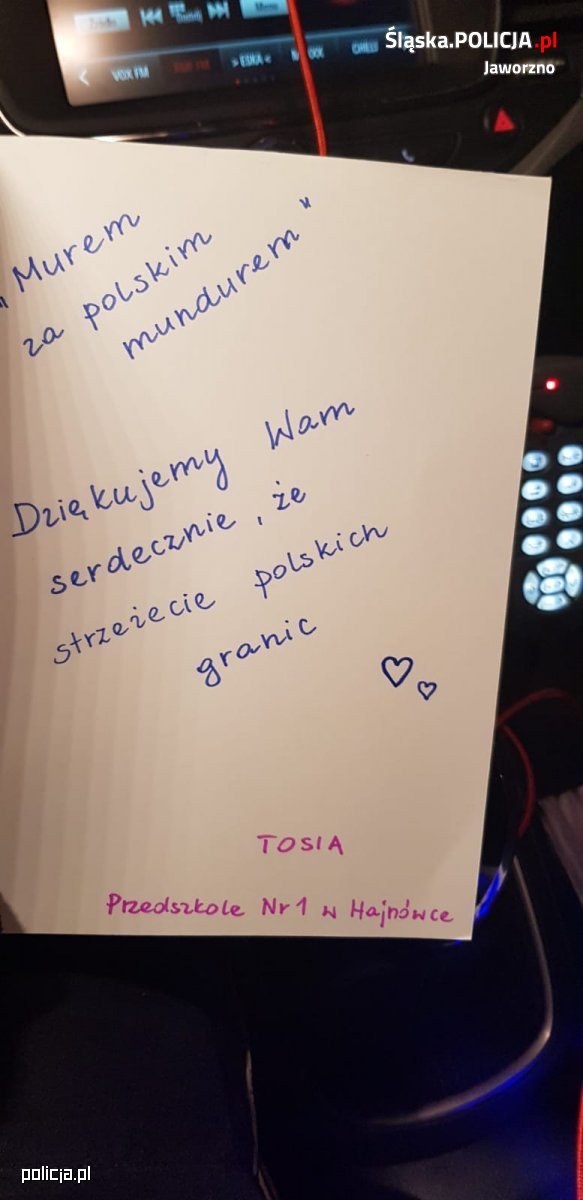 Śląska.POLICJA.pl
Jaworzno
Menu
VOX FM
> ESKA <
„Murem
za polskim
mundurem"
Dziękujemy Wam
serdecznie, że
strzeżecie polskich
granic
TOSIA
Przedszkole Nr 1 w Hajnówce
policja.pl